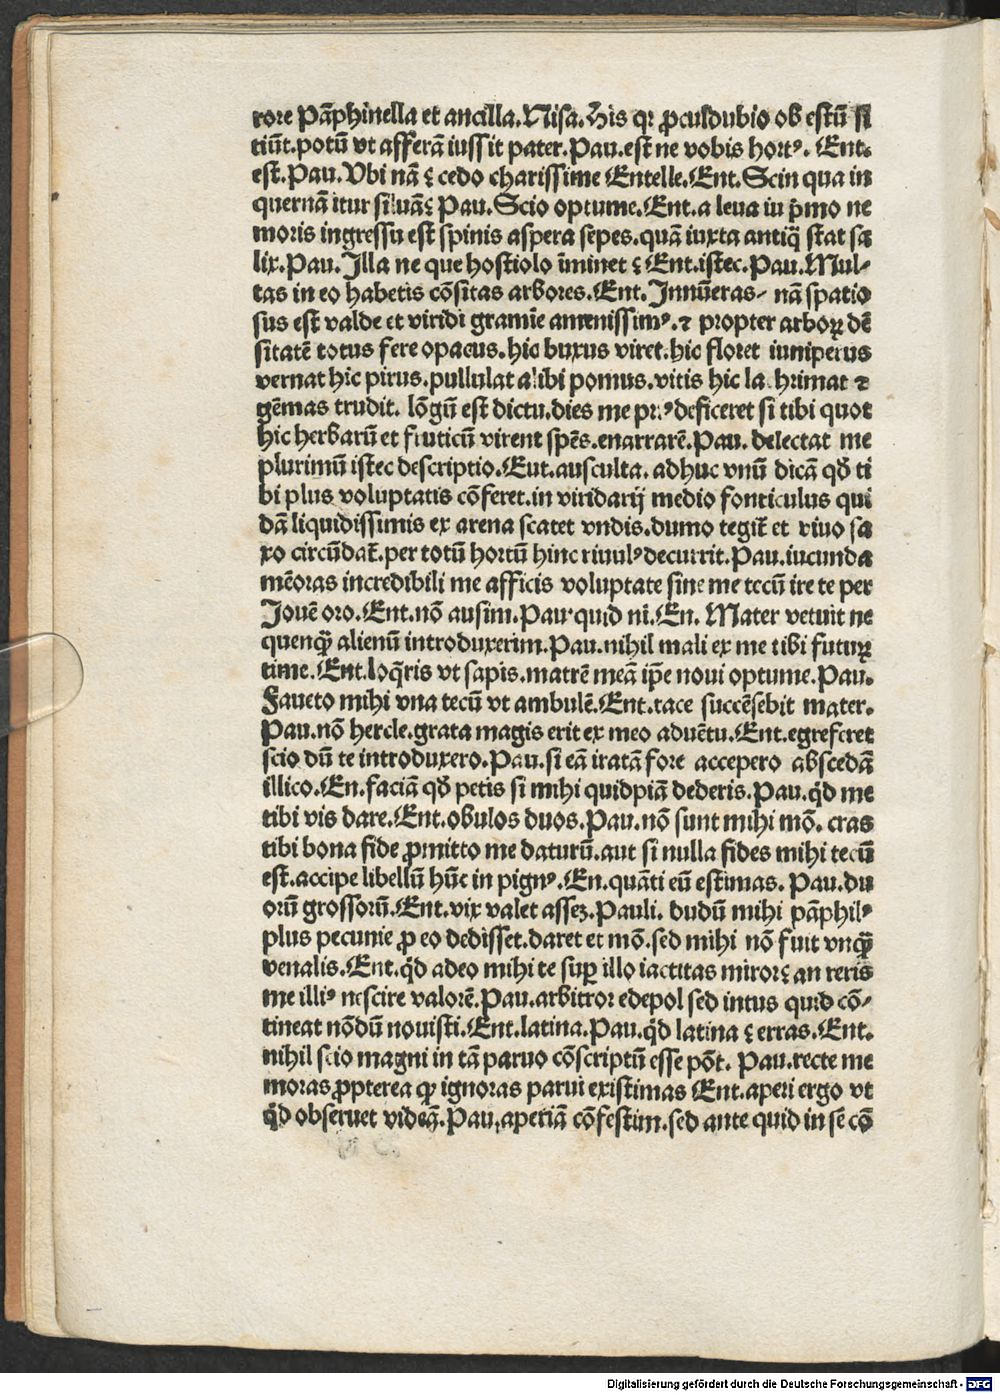 rore Pāphinella et ancilla. Nisa. His qꝛ ꝓculdubio ob estū si
tiūt. potū vt afferā iussit pater. Pau. est ne vobis hortꝰ. Ent.
est. Pau. Vbi nā ? cedo charissime Entelle. Ent. Scin qua in
quernā itur siluā? Pau. Scio optume. Ent. a leua iu p̄mo ne
moris ingressu est spinis aspera sepes. quā iuxta antiq̄ stat sa
lix. Pau. Illa ne que hostiolo īminet ? Ent. istec. Pau. Mul⸗
tas in eo habetis cōsitas arbores. Ent. Innūeras⸗ nā spatio
sus est valde et viridi gramīe amenissimꝰ. ⁊ propter arboꝝ dē
sitatē totus fere opacus. hic buxus viret. hic floret iuniperus
vernat hic pirus. pullulat alibi pomus. vitis hic lachrimat ⁊
gēmas trudit. lōgū est dictu. dies me priꝰ deficeret si tibi quot
hic herbarū et fruticū virent spēs. enarrarē. Pau. delectat me
plurimū istec descriptio. Eut. ausculta. adhuc vnū dicā qđ ti
bi plus voluptatis cōferet. in viridarij medio fonticulus qui
dā liquidissimis ex arena scatet vndis. dumo tegit᷑ et viuo sa
xo circūdat᷑. per totū hortū hinc riuulꝰ decurrit. Pau. iucunda
mēoras incredibili me afficis voluptate sine me tecū ire te per
Jouē oro. Ent. nō ausim. Pau. quid ni. En. Mater vetuit ne
quenq̄ alienū introduxerim. Pau. nihil mali ex me tibi futuꝝ
time. Ent. loq̄ris vt sapis. matrē meā ip̄e noui optume. Pau.
Faueto mihi vna tecū vt ambulē. Ent. tace succēsebit mater.
Pau. nō hercle. grata magis erit ex meo aduētu. Ent. egreferet
scio dū te introduxero. Pau. si eā iratā fore accepero abscedā
illico. En. faciā qđ petis si mihi quidpiā dederis. Pau. qͥd me
tibi vis dare. Ent. obulos duos. Pau. nō sunt mihi mō. cras
tibi bona fide ꝓmitto me daturū. aut si nulla fides mihi tecū
est. accipe libellū hūc in pignꝰ. En. quāti eū estimas. Pau. du
orū grossorū. Ent. vix valet assez. Pauli. dudū mihi pāphilꝰ
plus pecunie ꝓ eo dedisset. daret et mō. sed mihi nō fuit vnq̄
venalis. Ent. qͥd adeo mihi te suꝑ illo iactitas miror? an reris
me illiꝰ nescire valorē. Pau. arbitror edepol sed intus quid cō⸗
tineat nōdū nouisti. Ent. latina. Pau. qͥd latina ? erras. Ent.
nihil scio magni in tā paruo cōscriptū esse pōt. Pau. recte me
moras ꝓpterea qꝛ ignoras parui existimas Ent. aperi ergo vt
qͥd obseruet videā. Pau. aperiā cōfestim. sed ante quid in se cō
Digitalisierung gefördert durch die Deutsche Forschungsgemeinschaft - DFG